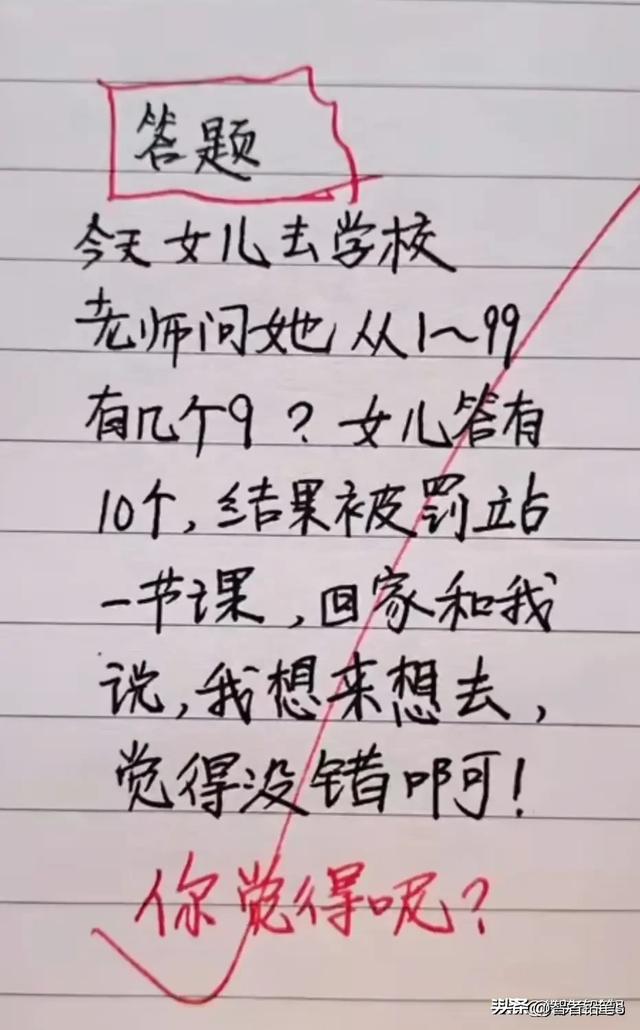 答题
今天女儿去学校
老师问她从1～99
有几个9？女儿答有
10个,结果被罚站
一节课,回家和我
说,我想来想去,
觉得没错啊!
你觉得呢?
头条@智者铅笔B